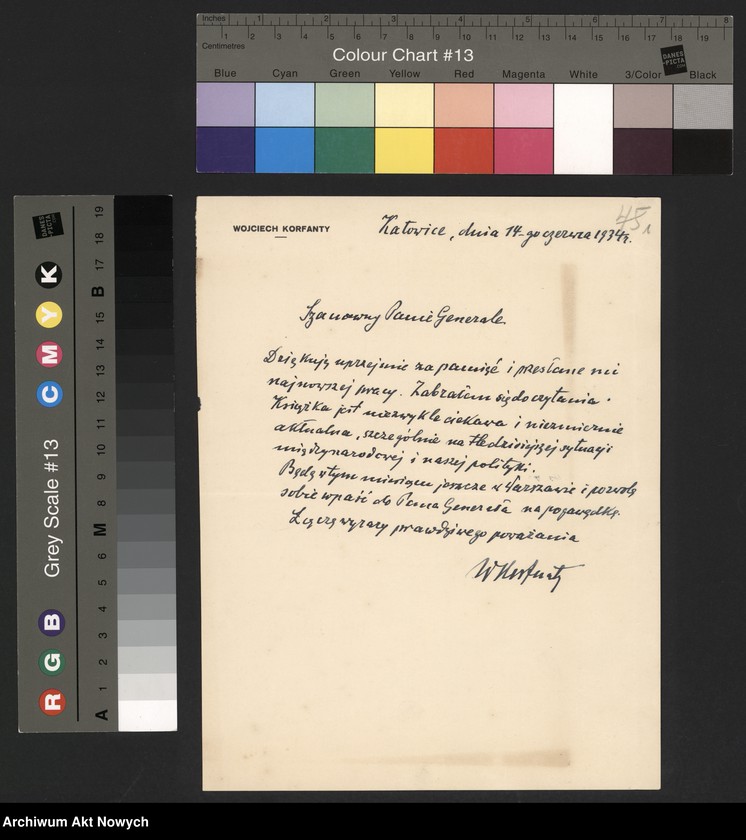 Inches 1 2 3 4 5 6 7 8
Centimetres 1 2 3 4 5 6 7 8 9 10 11 12 13 14 15 16 17 18 19
Colour Chart #13
DANES-PICTA.COM
Blue Cyan Green Yellow Red Magenta White 3/Color Black
Grey Scale #13
R G B C M Y K
DANES-PICTA.COM
A 1 2 3 4 5 6 M 8 9 10 11 12 13 14 15 B 17 18 19
45
WOJCIECH KORFANTY
Katowice, dnia 14-go czerwca 1934 r.
Szanowny Panie Generale
Dziękuję uprzejmie za pamięć i przesłane mi
najnowszej pracy. Zabrałem się do czytania.
Książka jest niezwykle ciekawa i niezmiernie
aktualna, szczególnie na tle dzisiejszej sytuacji
międzynarodowej i naszej polityki.
Będę w tym miesiącu jeszcze w Warszawie i pozwolę
sobie wpaść do Pana Generała na pogawędkę.
Łączę wyrazy prawdziwego poważania
WKorfanty
Archiwum Akt Nowych